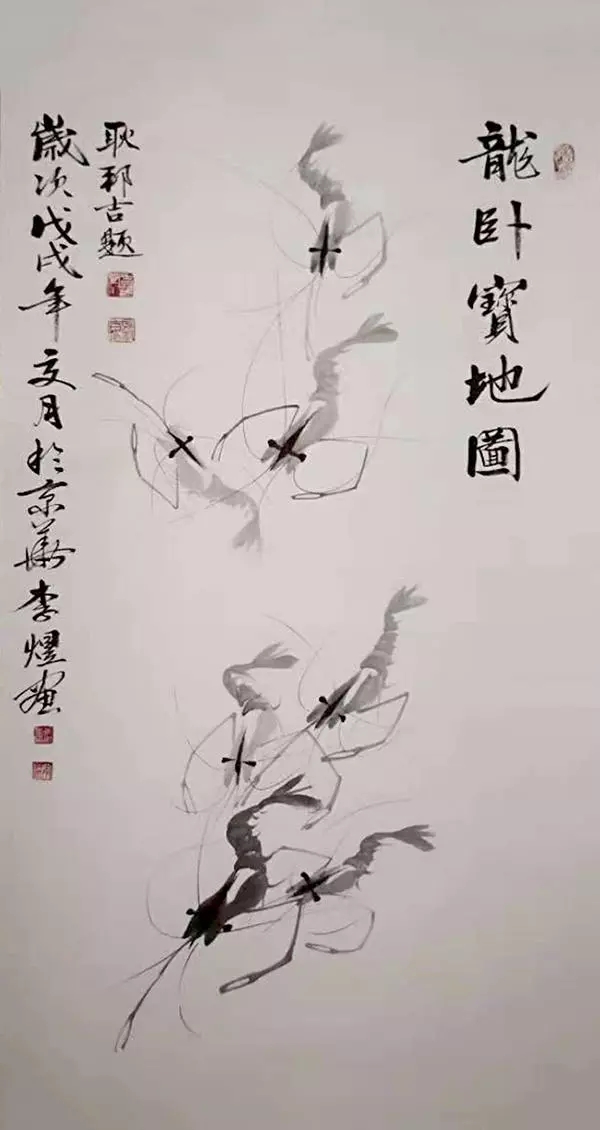 龍卧寶地圖
耿邦吉題
歲次戊戌年交月於京華李煜畫